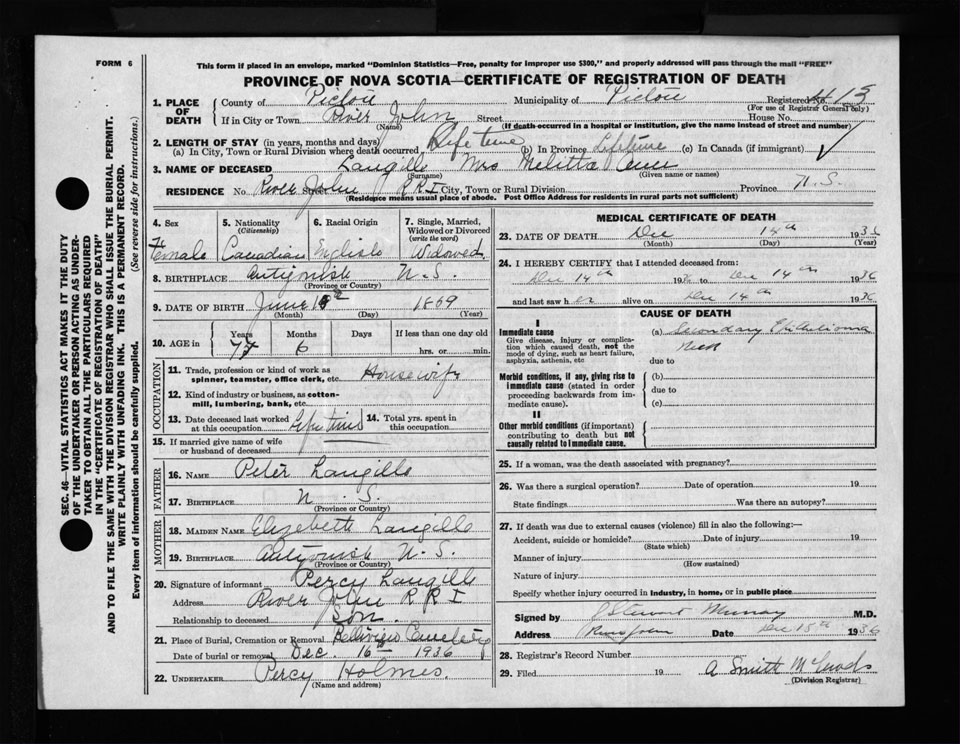 FORM 6
This form if placed in an envelope, marked "Dominion Statistics—Free, penalty for improper use $300," and properly addressed will pass through the mail "FREE"
PROVINCE OF NOVA SCOTIA—CERTIFICATE OF REGISTRATION OF DEATH
1. PLACE OF DEATH
County of Pictou Municipality of Pictou Registered No. 413
(For use of Registrar General only)
If in City or Town River John Street House No.
(Name) (If death occurred in a hospital or institution, give the name instead of street and number)
2. LENGTH OF STAY (in years, months and days)
(a) In City, Town or Rural Division where death occurred Life time (b) In Province Lifetime (c) In Canada (if immigrant)
3. NAME OF DECEASED Langille Mrs Melitta Ann
(Surname) (Given name or names)
RESIDENCE No. River John R R 1 City, Town or Rural Division Province N.S.
(Residence means usual place of abode. Post Office Address for residents in rural parts not sufficient)
4. Sex Female
5. Nationality (Citizenship) Canadian
6. Racial Origin English
7. Single, Married, Widowed or Divorced (write the word) Widowed
8. BIRTHPLACE Antigonish N.S.
(Province or Country)
9. DATE OF BIRTH June 1869
(Month) (Day) (Year)
10. AGE in Years Months 6 Days If less than one day old
hrs. or min.
OCCUPATION
11. Trade, profession or kind of work as spinner, teamster, office clerk, etc. Housewife
12. Kind of industry or business, as cotton-mill, lumbering, bank, etc.
13. Date deceased last worked at this occupation Lifetime
14. Total yrs. spent in this occupation
15. If married give name of wife or husband of deceased
FATHER
16. NAME Peter Langille
17. BIRTHPLACE N. S.
(Province or Country)
MOTHER
18. MAIDEN NAME Elizebeth Langille
19. BIRTHPLACE Antigonish N.S.
(Province or Country)
20. Signature of informant Percy Langille
Address River John R R 1
Relationship to deceased Son.
21. Place of Burial, Cremation or Removal Cemetery
Date of burial or removal Dec. 16th 1936
22. UNDERTAKER Percy Holmes.
(Name and address)
MEDICAL CERTIFICATE OF DEATH
23. DATE OF DEATH Dec 14th 193
(Month) (Day) (Year)
24. I HEREBY CERTIFY that I attended deceased from:
Dec 14th 19 to Dec 14th 1936
and last saw her alive on Dec 14th 1936
CAUSE OF DEATH
I
Immediate cause
Give disease, injury or complication which caused death, not the mode of dying, such as heart failure, asphyxia, asthenia, etc
(a) Secondary Epithelioma
Neck
due to
Morbid conditions, if any, giving rise to immediate cause (stated in order proceeding backwards from immediate cause).
(b)
due to
(c)
II
Other morbid conditions (if important) contributing to death but not causally related to immediate cause.
25. If a woman, was the death associated with pregnancy?
26. Was there a surgical operation? Date of operation 19
State findings Was there an autopsy?
27. If death was due to external causes (violence) fill in also the following:—
Accident, suicide or homicide? Date of injury 19
(State which)
Manner of injury
(How sustained)
Nature of injury
Specify whether injury occurred in industry, in home, or in public place
Signed by Stewart Murray M.D.
Address River John Date Dec 15th 1936
28. Registrar's Record Number
29. Filed 19 A Smith McLeod
(Division Registrar)
SEC. 46—VITAL STATISTICS ACT MAKES IT THE DUTY
OF THE UNDERTAKER OR PERSON ACTING AS UNDER-
TAKER TO OBTAIN ALL THE PARTICULARS REQUIRED
IN THE "CERTIFICATE OF REGISTRATION OF DEATH"
AND TO FILE THE SAME WITH THE DIVISION REGISTRAR WHO SHALL ISSUE THE BURIAL PERMIT.
WRITE PLAINLY WITH UNFADING INK. THIS IS A PERMANENT RECORD.
Every item of information should be carefully supplied. (See reverse side for instructions.)